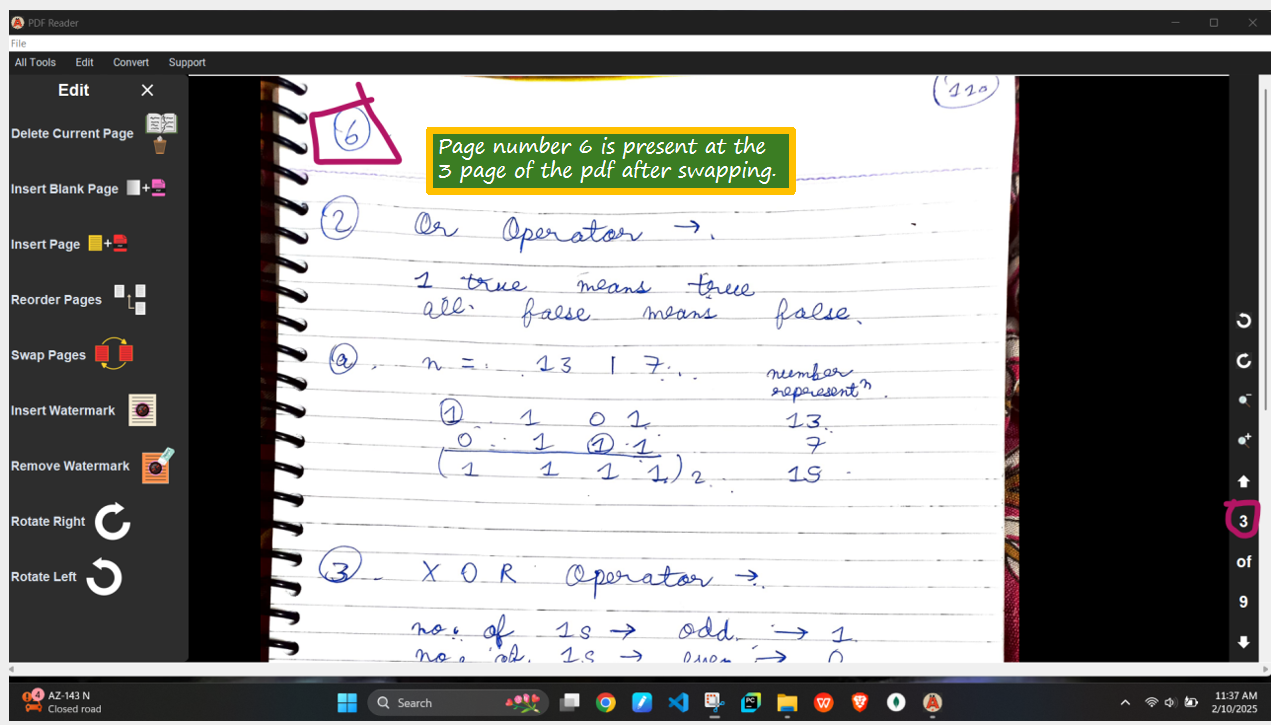 PDF Reader
File
All Tools Edit Convert Support
Edit
Delete Current Page
Insert Blank Page
Insert Page
Reorder Pages
Swap Pages
Insert Watermark
Remove Watermark
Rotate Right
Rotate Left
110
6
Page number 6 is present at the
3 page of the pdf after swapping.
2 Or Operator →.
1 true means true
all false means false.
a. n = 13 | 7
number
representⁿ.
1 1 0 1 13
0 1 1 1 7
(1 1 1 1)2 15
3. XOR Operator →
no. of 1s → odd → 1
no. of 1s → even → 0
3
of
9
4
AZ-143 N
Closed road
Search
11:37 AM
2/10/2025